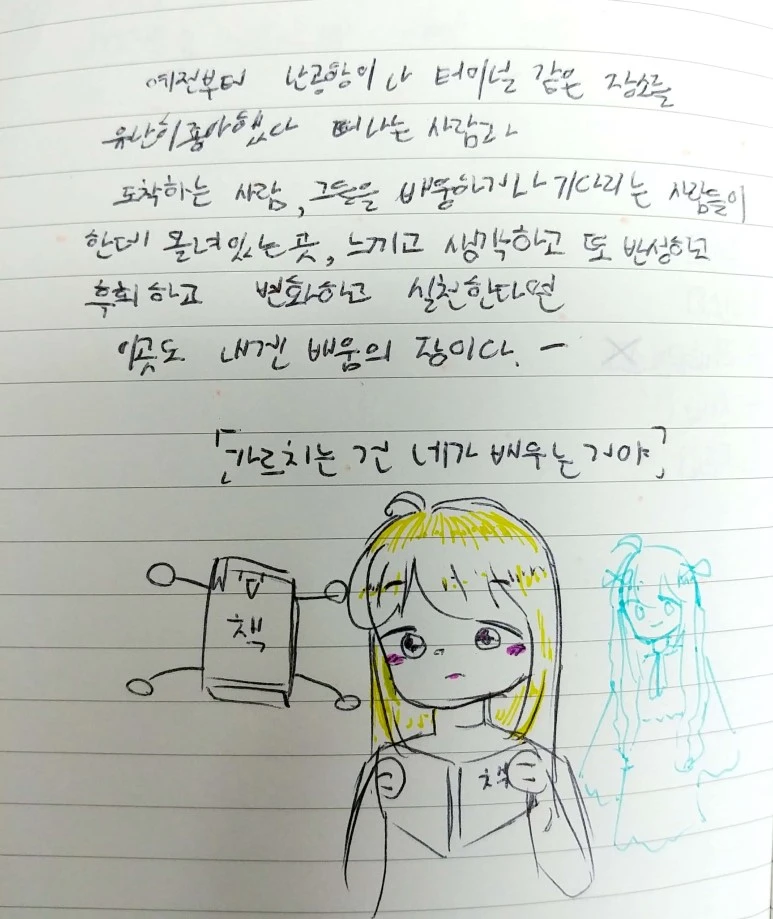 예전부터 난 공항이나 터미널 같은 장소를
유난히 좋아했다 떠나는 사람과
도착하는 사람, 그들을 배웅하거나 기다리는 사람들이
한데 몰려있는 곳, 느끼고 생각하고 또 반성하고
후회하고 변화하고 실천한다면
이곳도 내겐 배움의 장이다. -
[가르치는 건 네가 배우는거야]
책
책